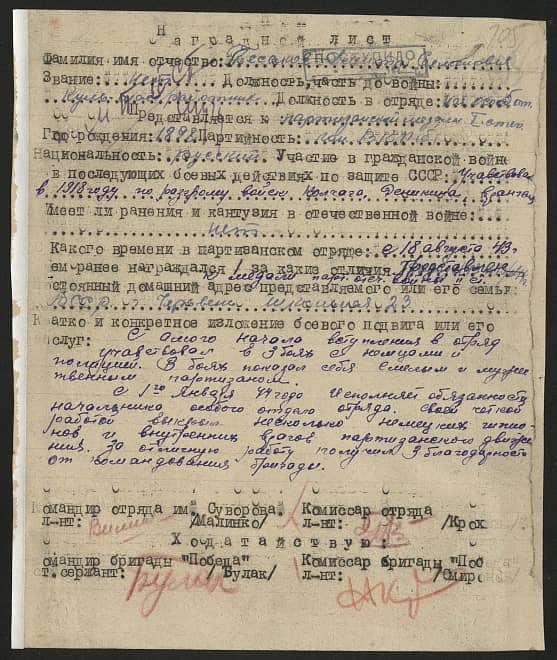 Наградной лист
Фамилия имя отчество:
Звание: нет Должность, часть до войны:
Должность в отряде:
Представляется к партизанской медали I степ.
Год рождения: 1898 Партийность: ВКП/б/
Национальность: Русский. Участие в гражданской войне
в последующих боевых действиях по защите СССР. Участвовал
в 1918 году по разгрому войск Колчака, Деникина, Врангеля
Имеет ли ранения и кантузия в отечественной войне:
нет
Какого времени в партизанском отряде: с 18 августа 43г.
ем ранее награждался, за каких отличия Представлен
к медали парт. отеч. войны II ст.
стоянный домашний адрес представляемого или его семьи:
БССР г. Червень Школьная 23
Кратко и конкретное изложение боевого подвига или его
слуг: С самого начала вступления в отряд
участвовал в 3 боях с немцами и
полицией. В боях показал себя смелым и мужес
твенным партизаном.
С 1го января 44 году исполняет обязанность
начальника особого отдела отряда. Своей четкой
работой выкрыл несколько немецких шпио-
нов и внутренних врагов партизанского движе
ния. За отличную работу получил 3 благодарность
от командования бригады.
омандир отряда им. Суворова Комиссар отряда
л-нт: /Малинко/ л-нт: /Крох
Ходатайствую:
омандир бригады "Победа" Комиссар бригады "Поб
т. сержант: Булак /Булак/ л-нт: /Смирн